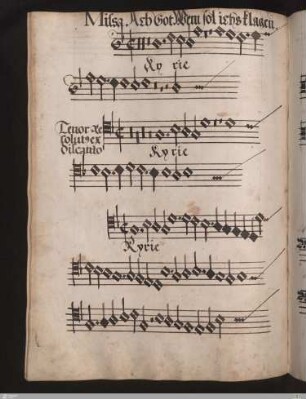 Missa Ach Got Wem sol ichs klagen
Ky rie
Tenor Re
solut9 ex
Kyrie
Kyrie